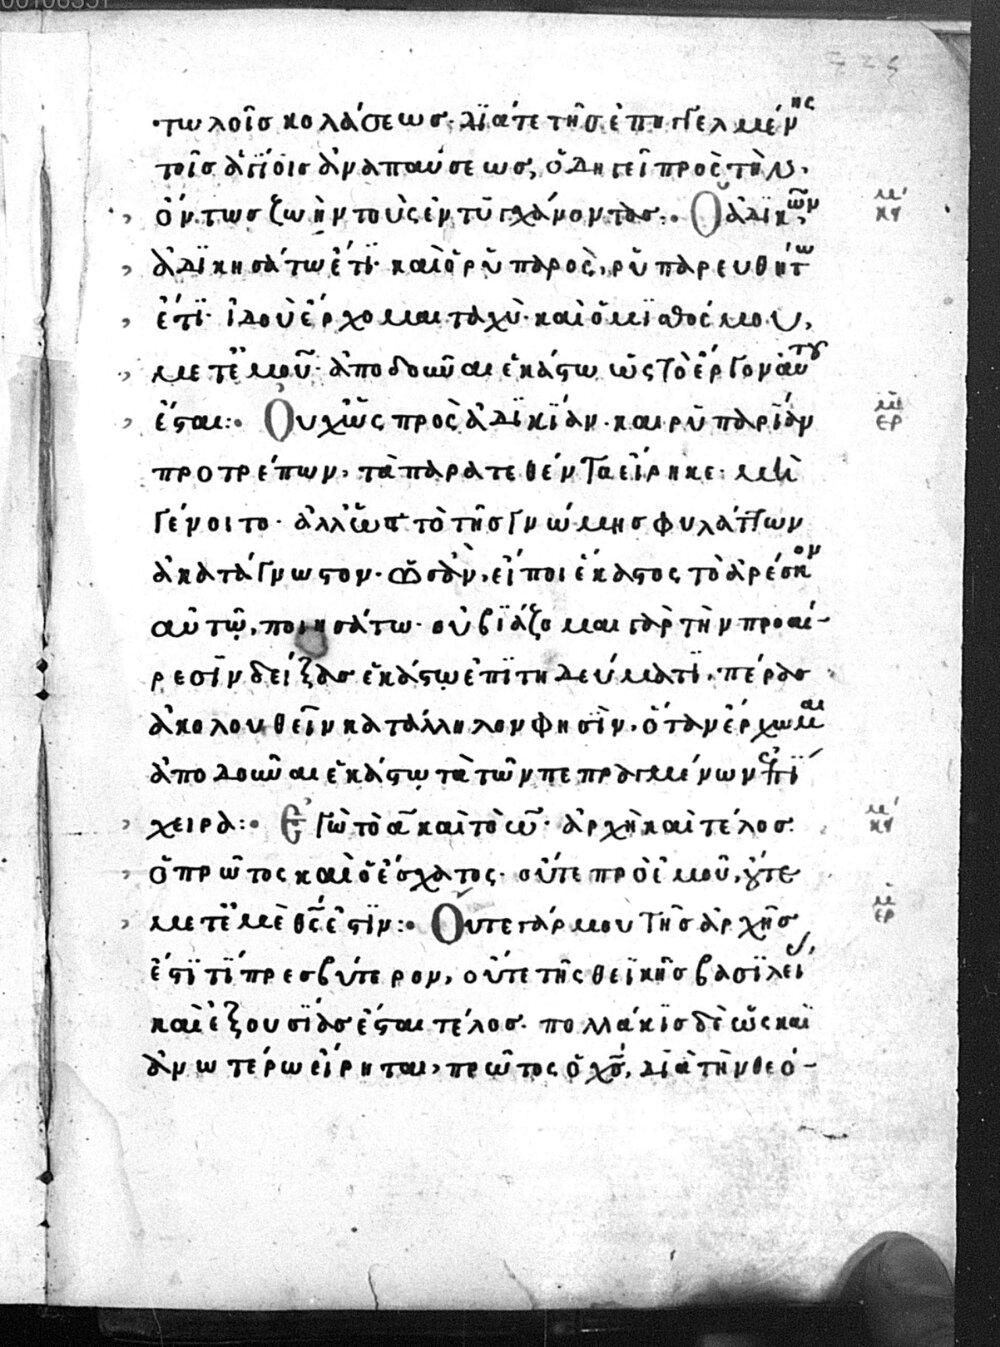 00108351
τωλοῖς κολάσεως· διά τε τῆς ἐπηγγελμένης
τοῖς ἁγίοις ἀναπαύσεως, ὁδηγεῖ πρὸς τὴν
ὄντως ζωὴν τοὺς ἐντυγχάνοντας:· Ὁ ἀδικῶν, κει
ἀδικησάτω ἔτι· καὶ ὁ ῥυπαρὸς, ῥυπαρευθήτω
ἔτι· ἰδοὺ ἔρχομαι ταχύ· καὶ ὁ μισθός μου,
μετ' ἐμοῦ· ἀποδοῦναι ἑκάστω ὡς τὸ ἔργον αὐτου
ἔσται:· Οὐχ ὡς πρὸς ἀδικίαν καὶ ῥυπαρίαν ερ
προτρέπων, τὰ παρατεθέντα εἴρηκε· μὴ
γένοιτο· ἀλλ' ὡς τὸ τῆς γνώμης φυλάττων
ἀκατάγνωστον· ὡσὰν, εἴποι ἕκαστος τὸ ἀρέσκον
αὐτῷ, ποιησάτω· οὐ βιάζομαι γὰρ τὴν προαί-
ρεσιν δείξας ἑκάστῳ ἐπιτηδεύματι, πέρας
ἀκολουθεῖν κατάλληλον φησὶν, ὅταν ἔρχωμαι
ἀποδοῦναι ἑκάστῳ τὰ τῶν πεπραγμένων ἐπί
χειρα:· Ἐγὼ τὸ α καὶ τὸ ω· ἀρχὴ καὶ τέλος·
ὁ πρῶτος καὶ ὁ ἔσχατος· οὔτε πρὸ ἐμοῦ, οὔτε
μετ' ἐμὲ θς ἐστιν:· Οὔτε γάρ μου τῆς ἀρχῆς ερ
ἐστί τι πρεσβύτερον, οὔτε τῆς θεϊκῆς βασιλείας
καὶ ἐξουσίας ἔσται τέλος· πολλάκις δὲ ὡς καὶ
ἀνωτέρω εἴρηται, πρῶτος ὁ χς, διὰ τὴν θεό-